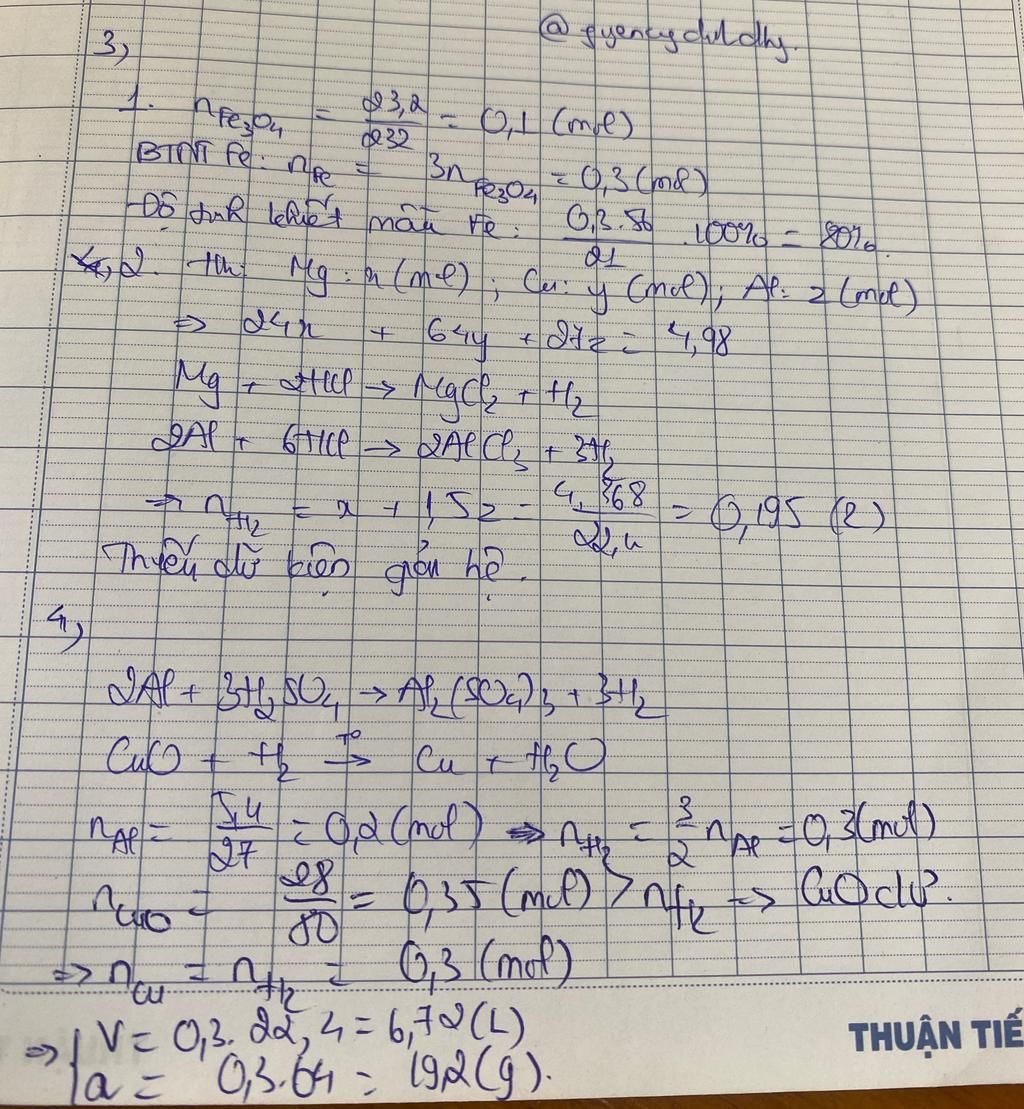 3,
1. nFe3O4 = 23,2/232 = 0,1 (mol)
BTNT Fe: nFe = 3nFe3O4 = 0,3 (mol)
Độ tinh khiết mẫu Fe: 0,3.56/21 .100% = 80%.
2. Mg: x (mol); Cu: y (mol); Al: z (mol)
=> 24x + 64y + 27z = 4,98
Mg + 2HCl → MgCl2 + H2
2Al + 6HCl → 2AlCl3 + 3H2
=> nH2 = x + 1,5z = 4,368/22,4 = 0,195 (l)
Thiếu dữ kiện giải hệ.
4,
2Al + 3H2SO4 → Al2(SO4)3 + 3H2
CuO + H2 →(t°) Cu + H2O
nAl = 5,4/27 = 0,2 (mol) => nH2 = 3/2 nAl = 0,3 (mol)
nCuO = 28/80 = 0,35 (mol) > nH2 => CuO dư.
=> nCu = nH2 = 0,3 (mol)
=> { V = 0,3.22,4 = 6,72 (L)
a = 0,3.64 = 19,2 (g).
THUẬN TIẾ